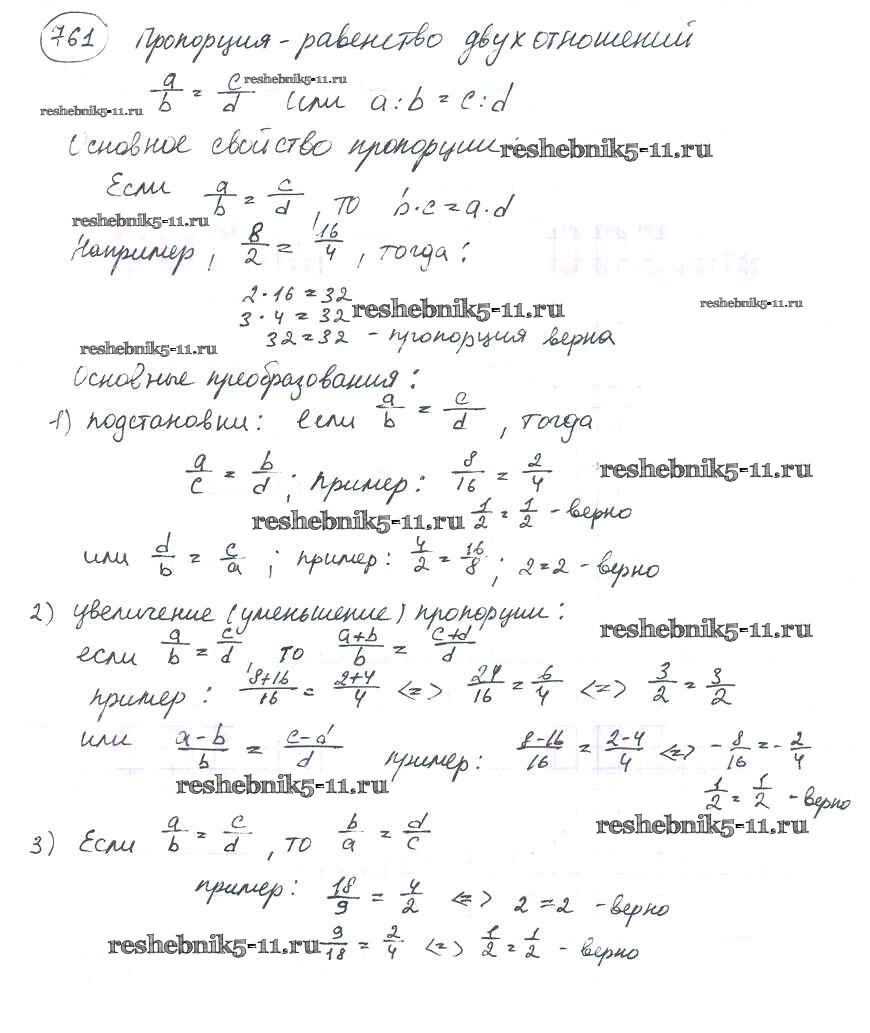 761 Пропорция - равенство двух отношений
a/b = c/d или a:b = c:d
reshebnik5-11.ru
reshebnik5-11.ru
Основное свойство пропорции: reshebnik5-11.ru
Если a/b = c/d, то b·c = a·d
reshebnik5-11.ru
Например, 8/2 = 16/4, тогда:
2·16 = 32
reshebnik5-11.ru
reshebnik5-11.ru
3·4 = 32
32 = 32 - пропорция верна
reshebnik5-11.ru
Основные преобразования:
1) подстановки: если a/b = c/d, тогда
a/c = b/d; пример: 8/16 = 2/4
reshebnik5-11.ru
1/2 = 1/2 - верно
reshebnik5-11.ru
или d/b = c/a; пример: 4/2 = 16/8; 2=2 - верно
2) увеличение (уменьшение) пропорции:
reshebnik5-11.ru
если a/b = c/d, то a+b/b = c+d/d
пример: 8+16/16 = 2+4/4 <=> 24/16 = 6/4 <=> 3/2 = 3/2
или a-b/b = c-d/d пример: 8-16/16 = 2-4/4 <=> -8/16 = -2/4
reshebnik5-11.ru
1/2 = 1/2 - верно
reshebnik5-11.ru
3) Если a/b = c/d, то b/a = d/c
пример: 18/9 = 4/2 <=> 2 = 2 - верно
reshebnik5-11.ru
9/18 = 2/4 <=> 1/2 = 1/2 - верно